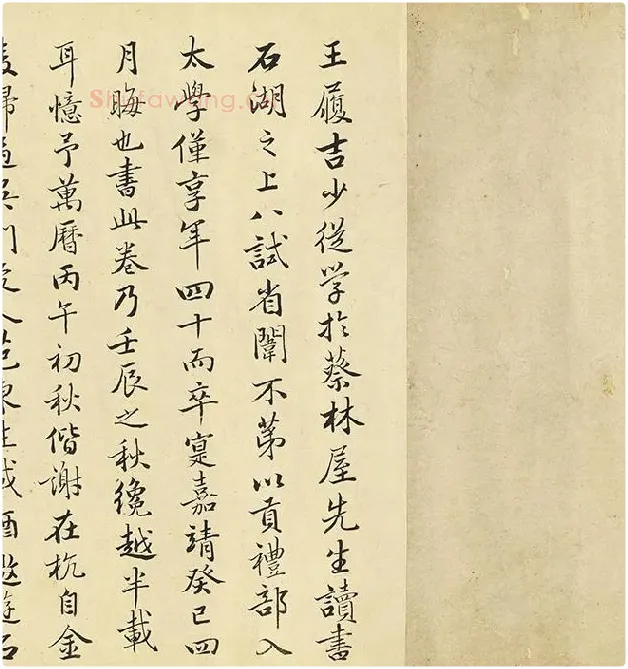 王履吉少從学於蔡林屋先生讀書
石湖之上八試省闈不第以貢禮部入
太學僅享年四十而卒寔嘉靖癸巳四
月晦也書此卷乃壬辰之秋纔越半載
耳憶予萬曆丙午初秋偕謝在杭自金